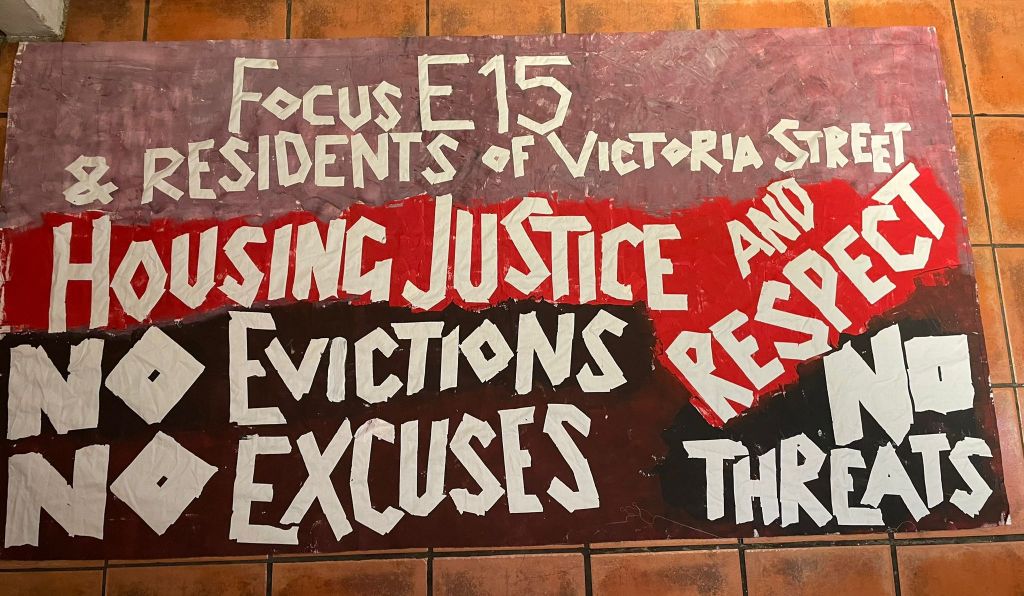 FOCUS E15
& RESIDENTS OF VICTORIA STREET
HOUSING JUSTICE AND
RESPECT
NO EVICTIONS
NO EXCUSES
NO
THREATS